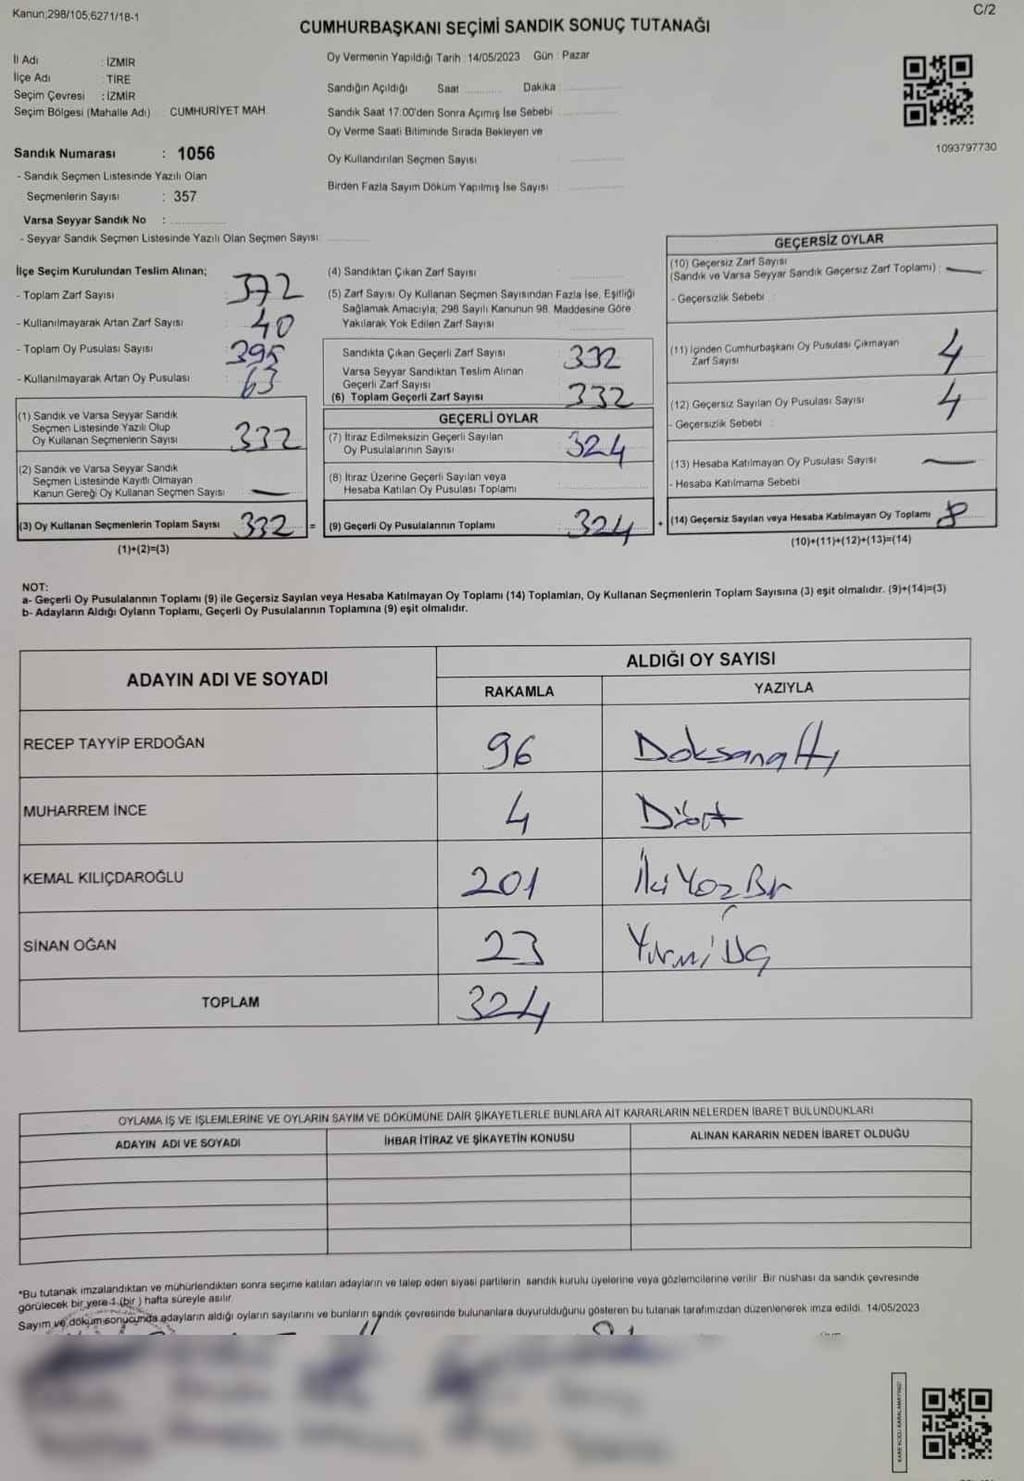 Kanun;298/105;6271/18-1
C/2
CUMHURBAŞKANI SEÇİMİ SANDIK SONUÇ TUTANAĞI
İl Adı : İZMİR
İlçe Adı : TİRE
Seçim Çevresi : İZMİR
Seçim Bölgesi (Mahalle Adı) CUMHURİYET MAH.
Sandık Numarası : 1056
- Sandık Seçmen Listesinde Yazılı Olan
Seçmenlerin Sayısı : 357
Varsa Seyyar Sandık No :
- Seyyar Sandık Seçmen Listesinde Yazılı Olan Seçmen Sayısı
Oy Vermenin Yapıldığı Tarih : 14/05/2023 Gün : Pazar
Sandığın Açıldığı Saat Dakika
Sandık Saat 17:00'den Sonra Açımış İse Sebebi
Oy Verme Saati Bitiminde Sırada Bekleyen ve
Oy Kullandırılan Seçmen Sayısı
Birden Fazla Sayım Döküm Yapılmış İse Sayısı
1093797730
İlçe Seçim Kurulundan Teslim Alınan;
- Toplam Zarf Sayısı 372
- Kullanılmayarak Artan Zarf Sayısı 40
- Toplam Oy Pusulası Sayısı 395
- Kullanılmayarak Artan Oy Pusulası 63
(1) Sandık ve Varsa Seyyar Sandık
Seçmen Listesinde Yazılı Olup
Oy Kullanan Seçmenlerin Sayısı 332
(2) Sandık ve Varsa Seyyar Sandık
Seçmen Listesinde Kayıtlı Olmayan
Kanun Gereği Oy Kullanan Seçmen Sayısı —
(3) Oy Kullanan Seçmenlerin Toplam Sayısı 332 =
(1)+(2)=(3)
(4) Sandıktan Çıkan Zarf Sayısı
(5) Zarf Sayısı Oy Kullanan Seçmen Sayısından Fazla İse, Eşitliği
Sağlamak Amacıyla; 298 Sayılı Kanunun 98. Maddesine Göre
Yakılarak Yok Edilen Zarf Sayısı
Sandıkta Çıkan Geçerli Zarf Sayısı 332
Varsa Seyyar Sandıktan Teslim Alınan
Geçerli Zarf Sayısı
(6) Toplam Geçerli Zarf Sayısı 332
GEÇERLİ OYLAR
(7) İtiraz Edilmeksizin Geçerli Sayılan
Oy Pusulalarının Sayısı 324
(8) İtiraz Üzerine Geçerli Sayılan veya
Hesaba Katılan Oy Pusulası Toplamı
(9) Geçerli Oy Pusulalarının Toplamı 324 +
GEÇERSİZ OYLAR
(10) Geçersiz Zarf Sayısı
(Sandık ve Varsa Seyyar Sandık Geçersiz Zarf Toplamı) : —
- Geçersizlik Sebebi
(11) İçinden Cumhurbaşkanı Oy Pusulası Çıkmayan
Zarf Sayısı 4
(12) Geçersiz Sayılan Oy Pusulası Sayısı 4
- Geçersizlik Sebebi
(13) Hesaba Katılmayan Oy Pusulası Sayısı —
- Hesaba Katılmama Sebebi
(14) Geçersiz Sayılan veya Hesaba Katılmayan Oy Toplamı 8
(10)+(11)+(12)+(13)=(14)
NOT:
a- Geçerli Oy Pusulalarının Toplamı (9) ile Geçersiz Sayılan veya Hesaba Katılmayan Oy Toplamı (14) Toplamları, Oy Kullanan Seçmenlerin Toplam Sayısına (3) eşit olmalıdır. (9)+(14)=(3)
b- Adayların Aldığı Oyların Toplamı, Geçerli Oy Pusulalarının Toplamına (9) eşit olmalıdır.
ADAYIN ADI VE SOYADI
ALDIĞI OY SAYISI
RAKAMLA YAZIYLA
RECEP TAYYİP ERDOĞAN 96 Doksanaltı
MUHARREM İNCE 4 Dört
KEMAL KILIÇDAROĞLU 201 İki Yüz Bir
SİNAN OĞAN 23 Yirmi Üç
TOPLAM 324
OYLAMA İŞ VE İŞLEMLERİNE VE OYLARIN SAYIM VE DÖKÜMÜNE DAİR ŞİKAYETLERLE BUNLARA AİT KARARLARIN NELERDEN İBARET BULUNDUKLARI
ADAYIN ADI VE SOYADI İHBAR İTİRAZ VE ŞİKAYETİN KONUSU ALINAN KARARIN NEDEN İBARET OLDUĞU
*Bu tutanak imzalandıktan ve mühürlendikten sonra seçime katılan adayların ve talep eden siyasi partilerin sandık kurulu üyelerine veya gözlemcilerine verilir. Bir nüshası da sandık çevresinde
görülecek bir yere 1 (bir) hafta süreyle asılır.
Sayım ve döküm sonucunda adayların aldığı oyların sayılarını ve bunların sandık çevresinde bulunanlara duyurulduğunu gösteren bu tutanak tarafımızdan düzenlenerek imza edildi. 14/05/2023